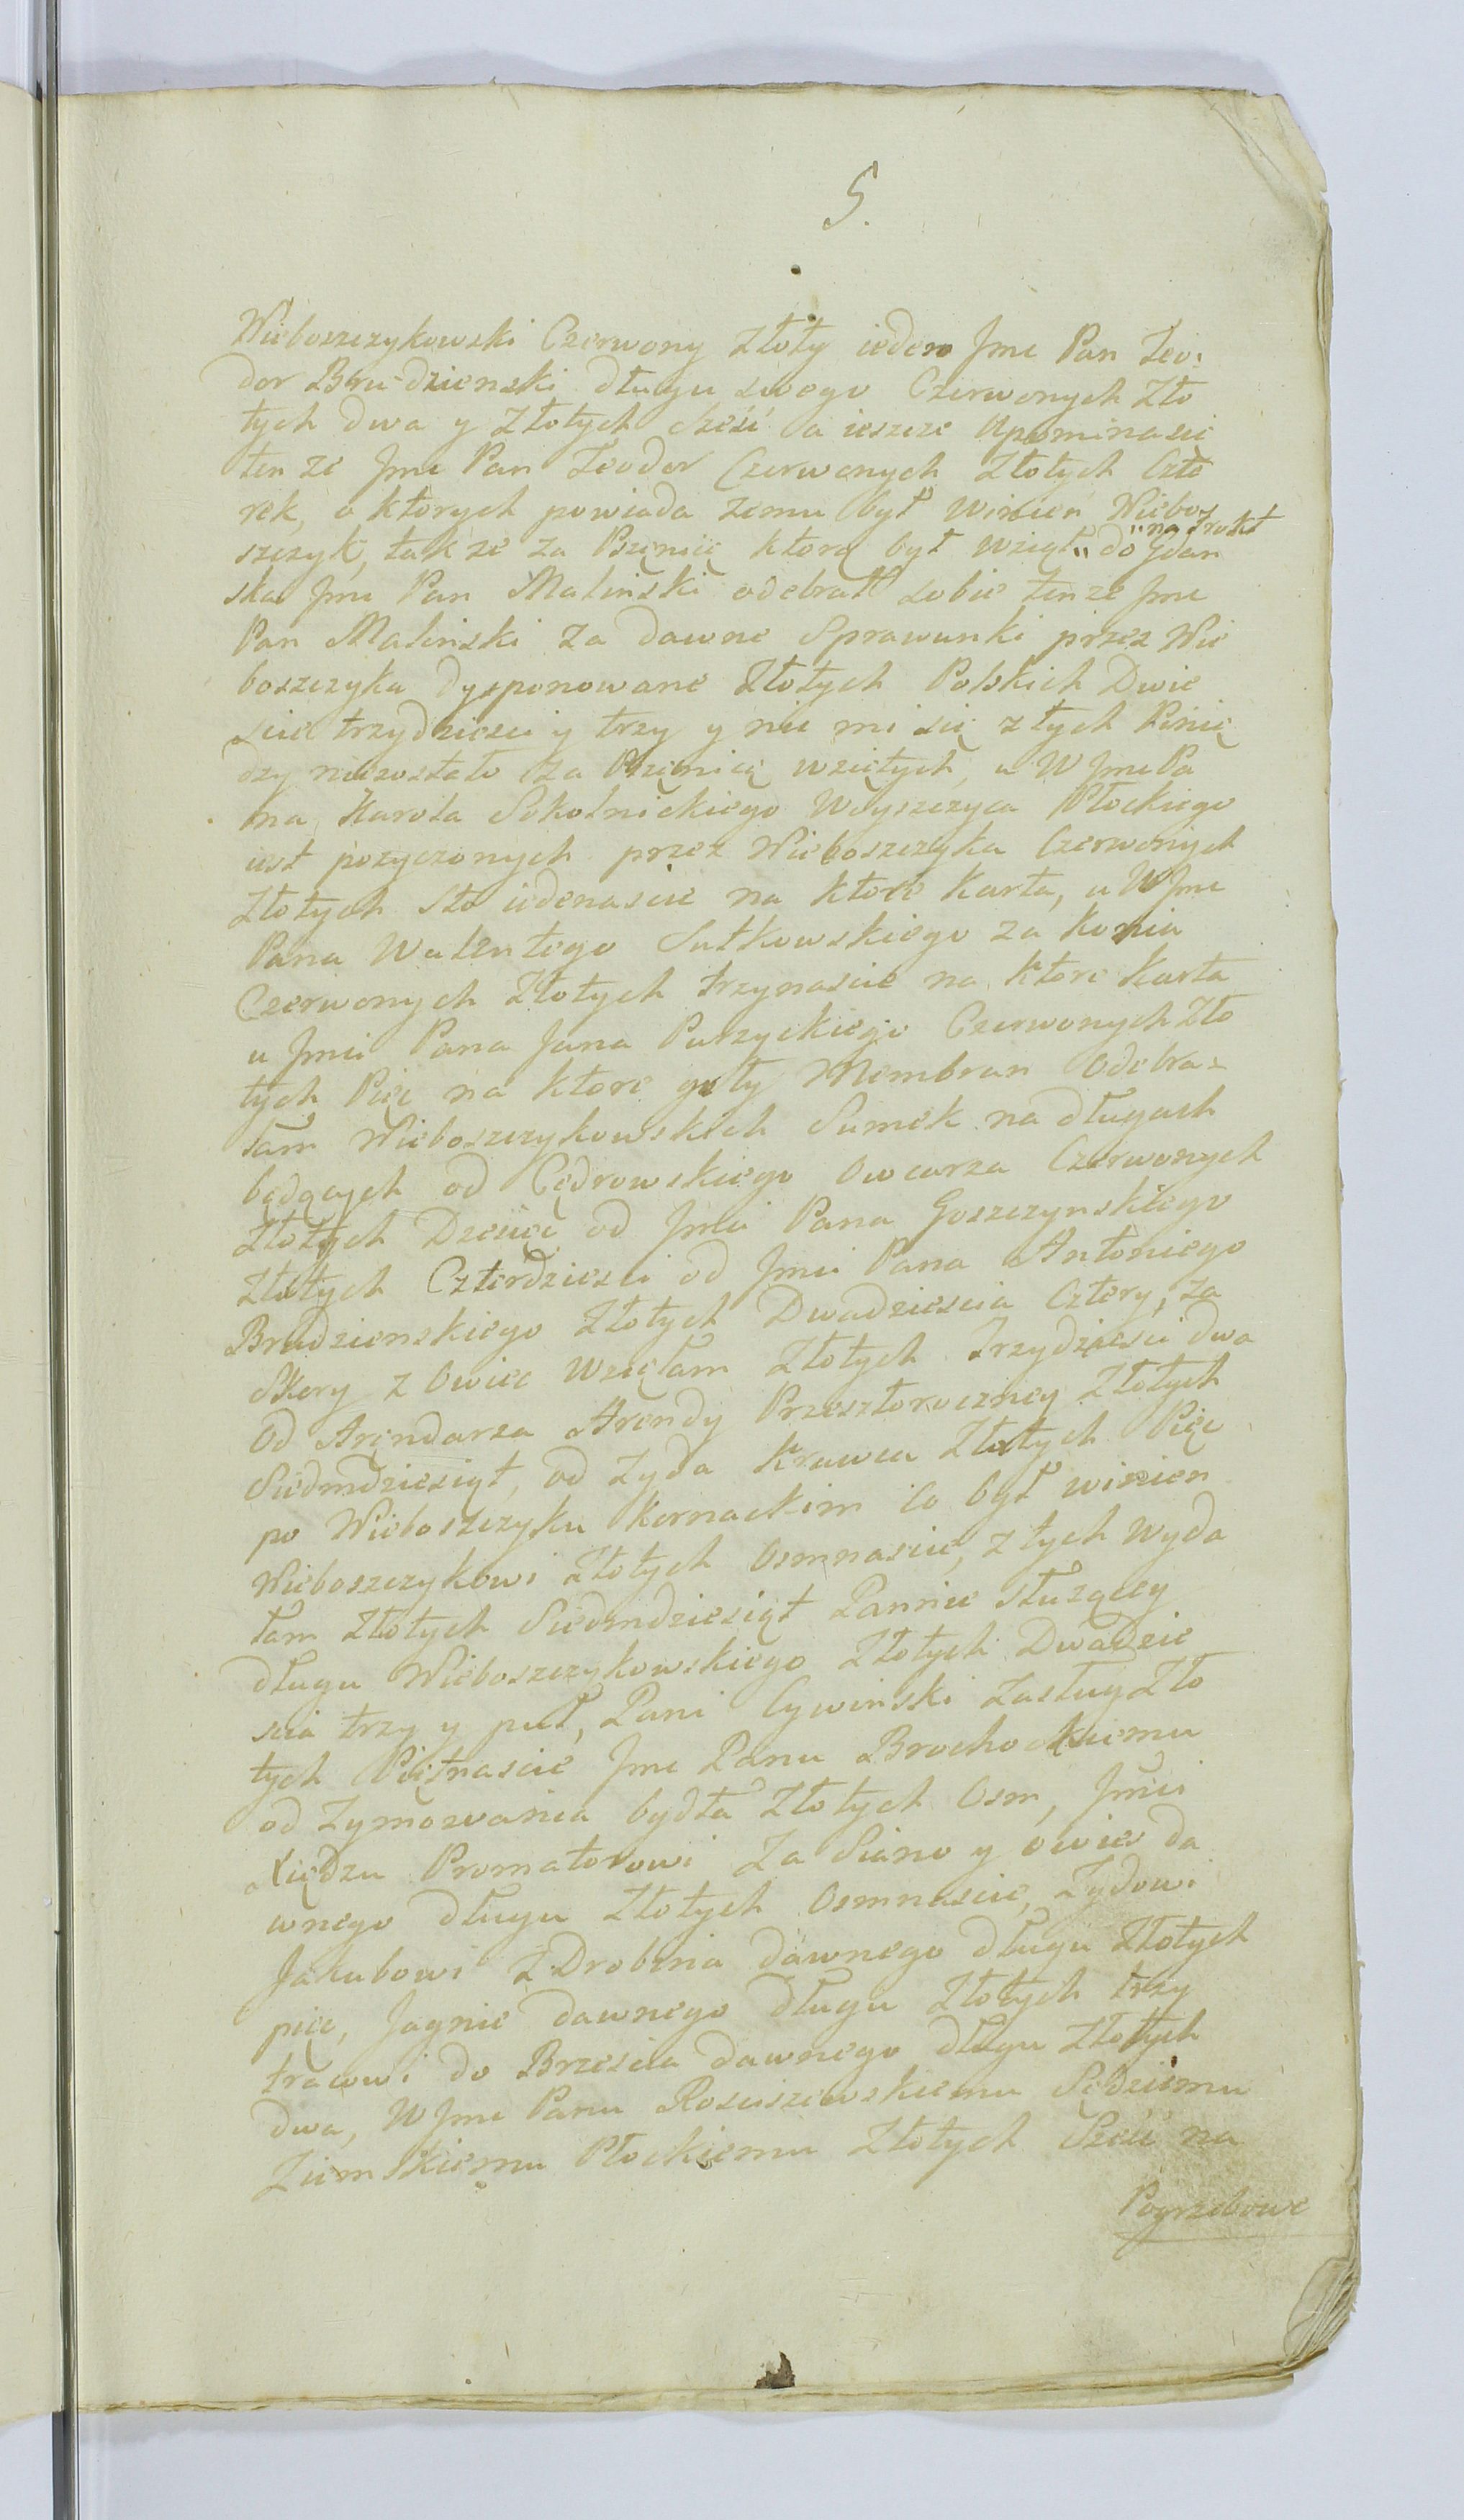 5.
Wieboszczykowski Czerwony Złoty ieden Jme Pan Teo:
dor Brudzienski długu swego Czerwonych Zło
tych dwa y Złotych sześć a ieszcze Upominasie
ten ze Jme Pan Teodor Czerwonych Złotych Czte
rek, o ktorych powiada zemu był Winien Niebo
szczyk, tak ze za Psęnicę ktorą był wziął " do Gdan
" na Frokt
ska Jme Pan Malinski odebrał sobie tenze Jme
Pan Malinski za dawne Sprawunki przez Wie
boszczyka dysponowane Złotych Polskich Dwie
scie trzydziesci y trzy y nic mi się z tych Pinię
dzy niezostało za Psęnicę wziętych, u W Jme Pa
na Karola Sokolnickiego Woyszczyca Płockiego
ust pozyczonych przez Wieboszczyka Czerwonych
Złotych Sto iedenascie na ktore Karta, u W Jme
Pana Walentego Sutkowskiego za Konia
Czerwonych Złotych trzynascie na ktore Karta
u Jmci Pana Jana Purzyckiego Czerwonych Zło
tych Pięc na ktore goły Membran Odebra-
łam Wieboszczykowskich Sumek na długach
będących od Cędrowskiego Owczarza Czerwonych
Złotych Dziesięć od Jmci Pana Goszczynskiego
Złotych Czterdziesci od Jmci Pana Antoniego
Brudzienskiego Złotych Dwadziescia Cztery, za
Skory z Owiec Wzięłam Złotych Trzydziesci dwa
Od Arendarza Arendy Przeszłoroczney Złotych
Siedmdziesiąt, od Zyda Krawca Złotych Pięc
po Wieboszczyku Kornackim co był winien
Wieboszczykowi Złotych Osmnascie, z tych Wyda
łam Złotych Siedmdziesiąt Pannie służącey
długu Wieboszczykowskiego Złotych Dwadzie
scia trzy y puł, Pani Cywinski Zasług Zło
tych Piętnascie Jme Panu Brochockiemu
od Zymowania bydła Złotych Osm, Jmci
Xiędzu Promotorowi Za Siano y owies da
wnego długu Złotych Osmnascie, Zydowi
Jakubowi z Drobina dawnego długu Złotych
pięc, Jagnie dawnego długu Złotych trzy
tracowi do Brzescia dawnego długu Złotych
dwa, W Jme Panu Rosciszewskiemu Sędziemu
Ziemskiemu Płockiemu Złotych Sześć na
Pogrzebowe